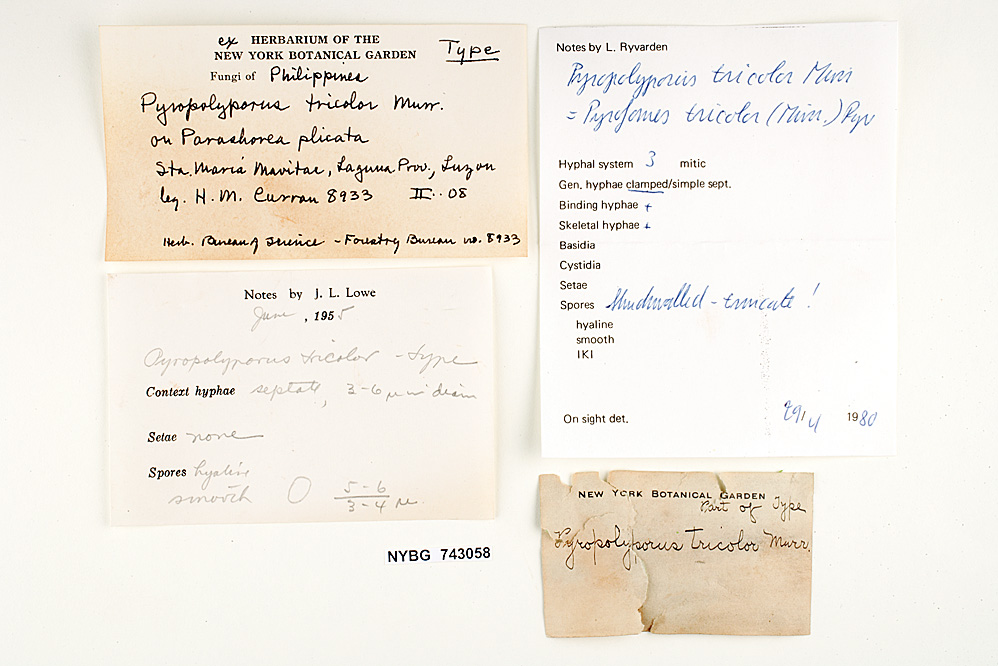 ex HERBARIUM OF THE
NEW YORK BOTANICAL GARDEN
Type
Fungi of Philippines
Pyropolyporus tricolor Murr.
on Parashorea plicata
Sta. Maria Mavitac, Laguna Prov., Luzon
leg. H. M. Curran 8933 II·· 08
Herb. Bureau of Science - Forestry Bureau no. 8933
Notes by J. L. Lowe
June, 1955
Pyropolyporus tricolor - type
Context hyphae septate, 3-6 µ in diam
Setae none
Spores hyaline
smooth 5-6
3-4 µ.
NYBG 743058
Notes by L. Ryvarden
Pyropolyporus tricolor Murr
= Pyrofomes tricolor (Murr.) Ryv
Hyphal system 3 mitic
Gen. hyphae clamped/simple sept.
Binding hyphae +
Skeletal hyphae +
Basidia
Cystidia
Setae
Spores thickwalled - truncate !
hyaline
smooth
IKI
On sight det. 29/4 1980
NEW YORK BOTANICAL GARDEN
Part of Type
Pyropolyporus tricolor Murr.